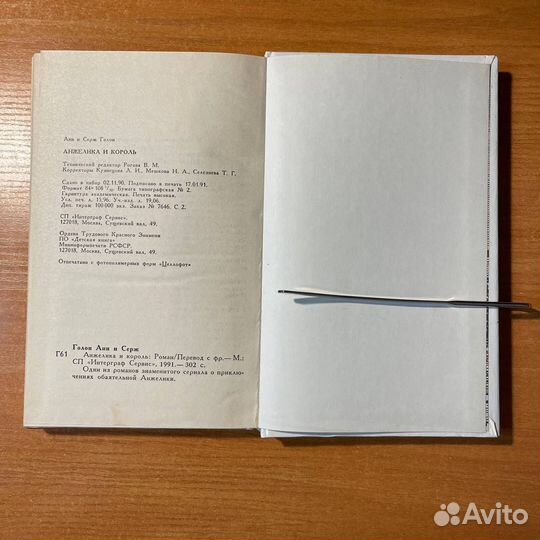 Анн и Серж Голон
АНЖЕЛИКА И КОРОЛЬ
Технический редактор Рогова В. М.
Корректоры Кузнецова Л. И., Мешкова Н. А., Селезнева Т. Г.
Сдано в набор 02.11.90. Подписано в печать 17.01.91.
Формат 84×108 1/32. Бумага типографская № 2.
Гарнитура академическая. Печать высокая.
Усл. печ. л. 15,96. Уч.-изд. л. 19,06.
Доп. тираж 100 000 экз. Заказ № 7646. С 2.
СП «Интерграф Сервис».
127018, Москва, Сущевский вал, 49.
Ордена Трудового Красного Знамени
ПО «Детская книга»
Мининформпечати РСФСР.
127018, Москва, Сущевский вал, 49.
Отпечатано с фотополимерных форм «Целлофот»
Голон Анн и Серж
Г61 Анжелика и король: Роман/Перевод с фр.— М.:
СП «Интерграф Сервис», 1991.— 302 с.
Один из романов знаменитого сериала о приклю-
чениях обаятельной Анжелики.
Avito